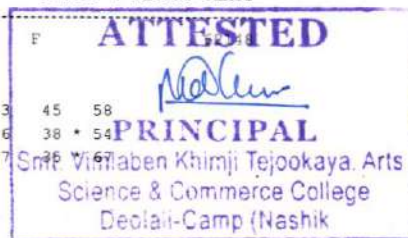 F
ATTESTED
3 45 58
6 38 * 54
PRINCIPAL
7 36 * 67
Smt. Vimlaben Khimji Tejookaya. Arts
Science & Commerce College
Deolali-Camp (Nashik